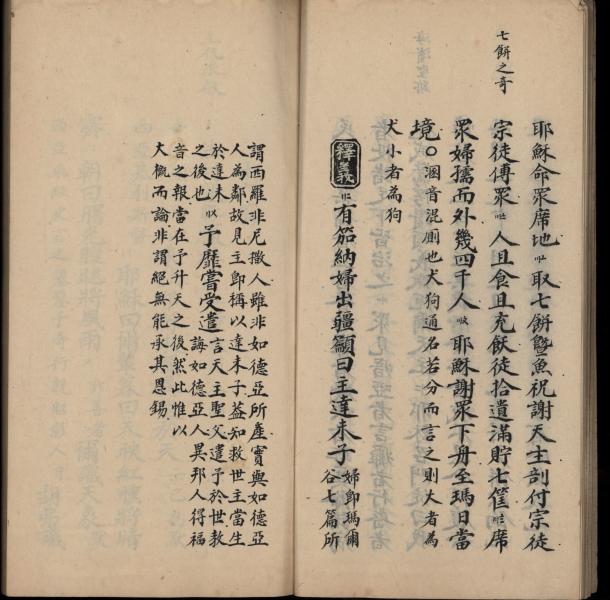 七餅之奇
耶穌命眾席地取七餅暨魚祝謝天主剖付宗徒
宗徒傅眾人且食且充飫徒拾遺滿貯七筐席
眾婦孺而外幾四千人耶穌謝眾下舟至瑪日當
境○溷音混厠也犬狗通名若分而言之則大者為
犬小者為狗
釋義有笳納婦出疆籲曰主達未子婦即瑪爾
谷七篇所
謂西羅非尼撒人雖非如德亞所產實與如德亞
人為鄰故見主即稱以達未子葢知救世主當生
於達未
之後也予靡嘗受遣言天主聖父遣予於世教
誨如德亞人異邦人得福
音之報當在予升天之後然此惟以
大概而論非謂絕無能承其恩錫